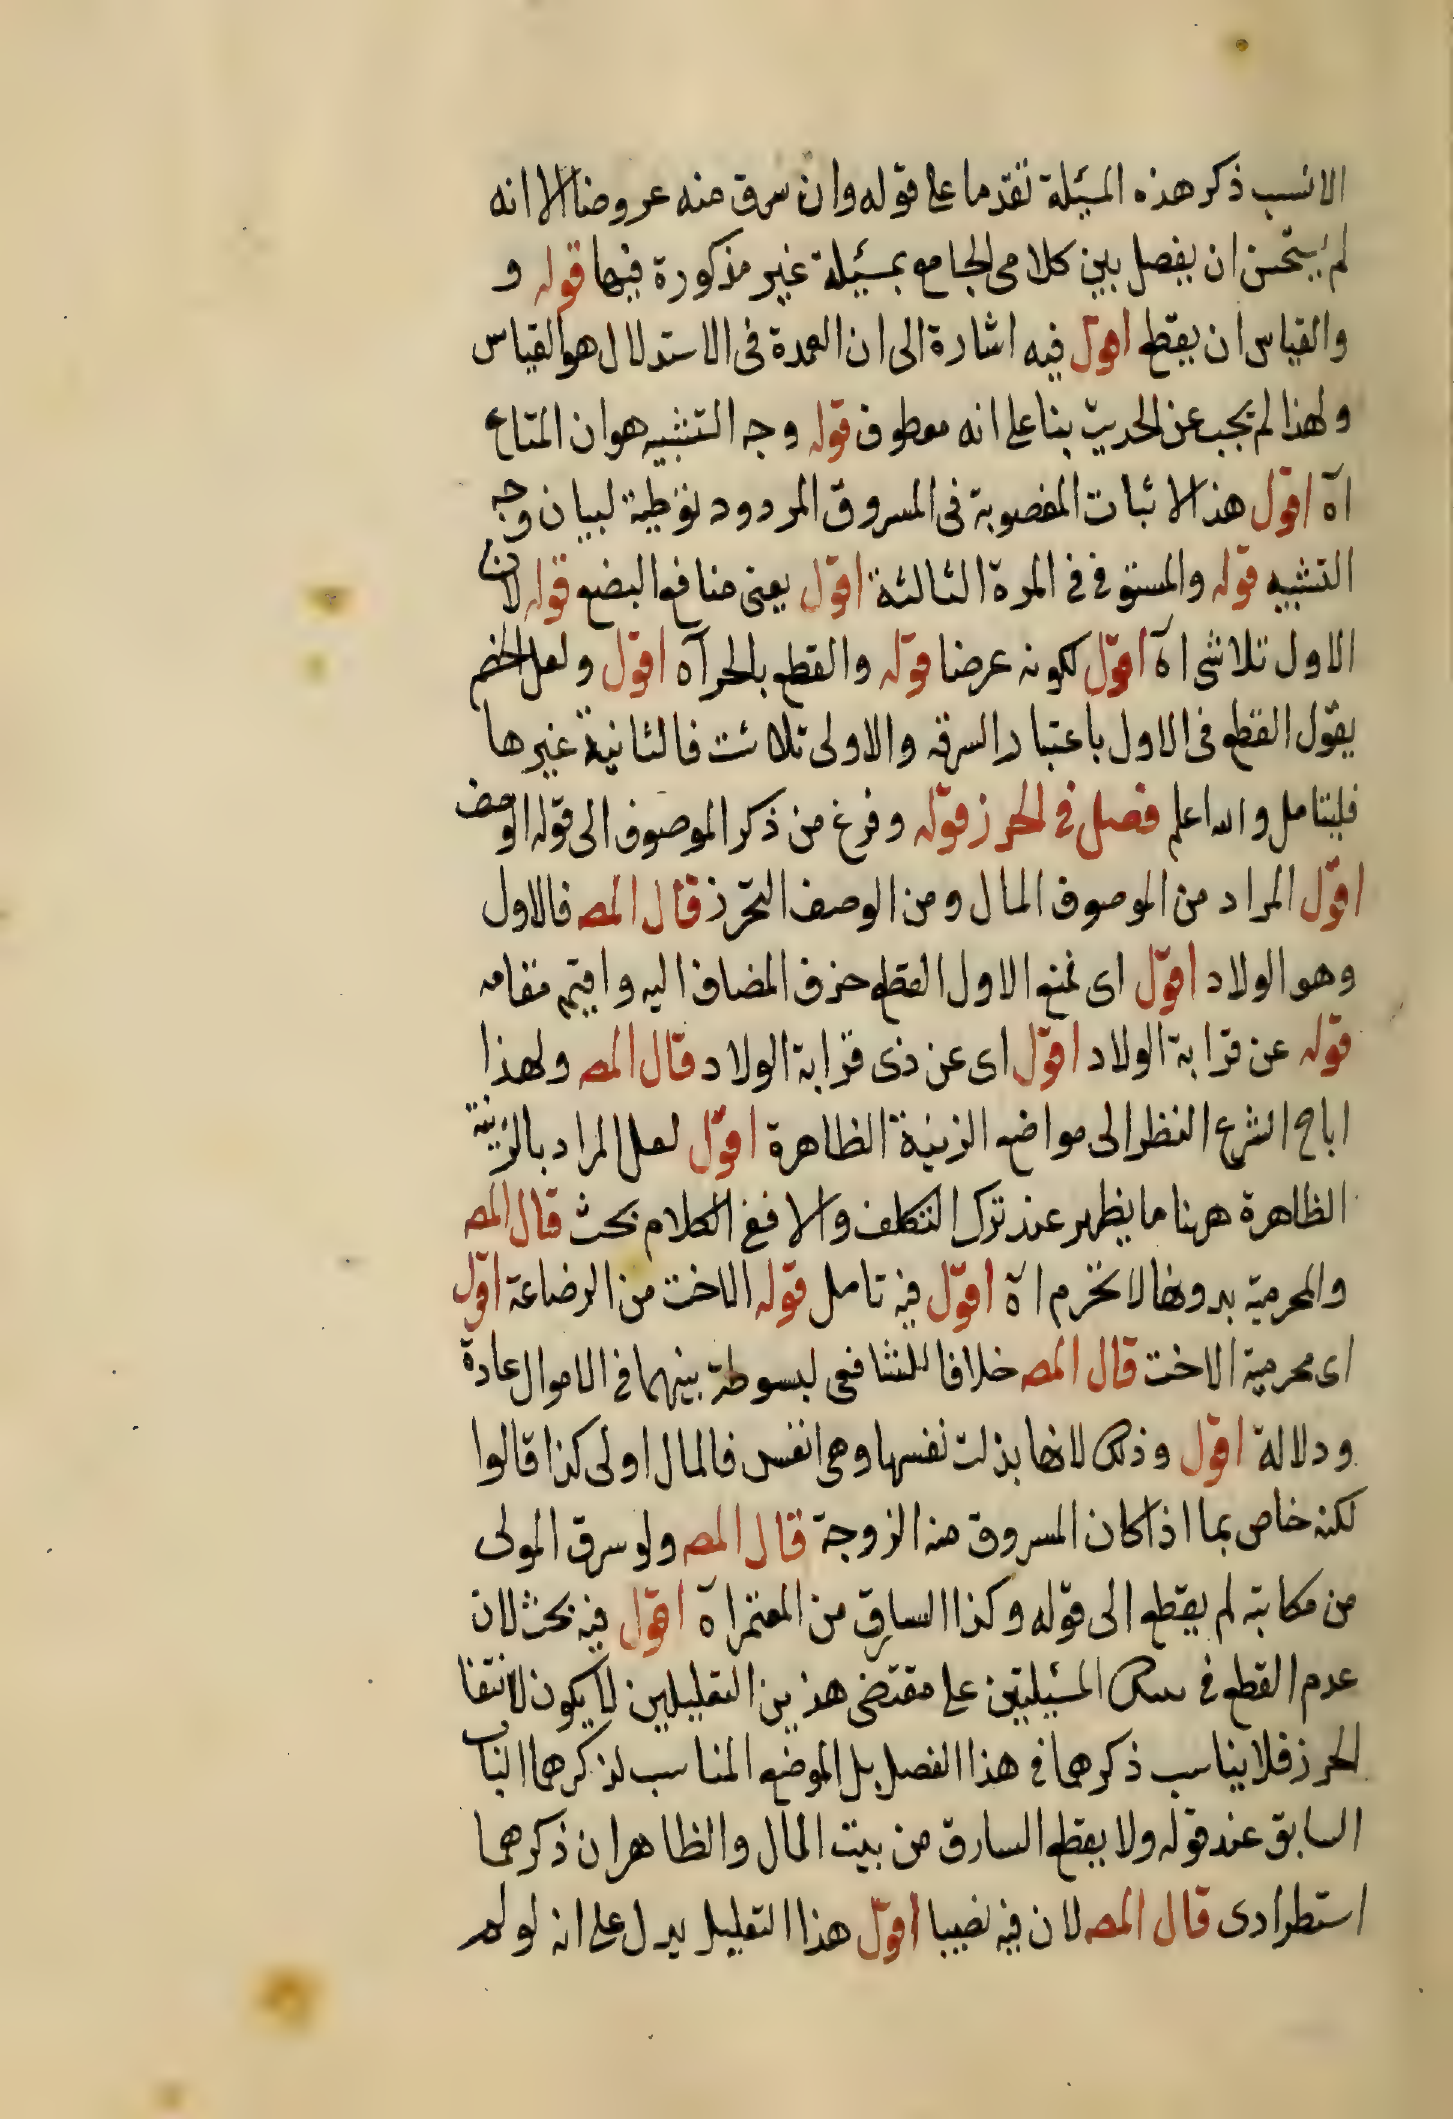 الانسب ذكر هذه المسئلة تقدما على قوله وان سرق منه عروضا الا انه
لم يستحسن ان يفصل بين كلامى الجامع بمسئلة غير مذكورة فيها قوله و
والقياس ان يقطع اقول فيه اشارة الى ان العمدة فى الاستدلال هو القياس
ولهذا لم يجب عن الحديث بنا على انه معطوف قوله وجه التشبيه هو ان المتاع
اه اقول هذا لاثبات المغصوبة فى المسروق المردود توطية لبيان وجه
التشبيه قوله والمستوفى فى المرة الثالثة اقول يعنى منافع البضع قوله لان
الاول تلاشى اه اقول لكونه عرضا قوله والقطع بالحر اه اقول ولعل الخصم
يقول القطع فى الاول باعتبار السرقه والاولى تلاشت فالثانية غيرها
فليتامل والله اعلم فصل فى الحرز قوله وفرغ من ذكر الموصوف الى قوله الوصف
اقول المراد من الموصوف المال ومن الوصف التحرز قال المصه فالاول
وهو الولاد اقول اى نمنع الاول القطع حذف المضاف اليه واقيم مقامه
قوله عن قرابة الولاد اقول اى عن ذى قرابة الولاد قال المصه ولهذا
اباح الشرع النظر الى مواضع الزينة الظاهرة اقول لعل المراد بالزينة
الظاهرة ههنا ما يظهر عند ترك التكلف والا ففى الكلام بحث قال المصه
والمحرمية بدونها لا تحترم اه اقول فيه تامل قوله الاخت من الرضاعة اقول
اى محرمية الاخت قال المصه خلافا للشافعى لبسوطة بينهما فى الاموال عادة
ودلالة اقول وذلك لانها بذلت نفسها وهى انفس فالمال اولى كذا قالوا
لكنه خاص بما اذا كان المسروق منه الزوجة قال المصه ولو سرق المولى
من مكاتبه لم يقطع الى قوله وكذا السارق من المغنم اه اقول فيه بحث لان
عدم القطع فى المسئلتين على مقتضى هذين التعليلين لا يكون لانتفا
الحرز فلا يناسب ذكرهما فى هذا الفصل بل الموضع المناسب لذكرهما الباب
السابق عند قوله ولا يقطع السارق من بيت المال والظاهر ان ذكرهما
استطرادى قال المصه لان فيه نصيبا اقول هذا التعليل يدل على انه لو لم